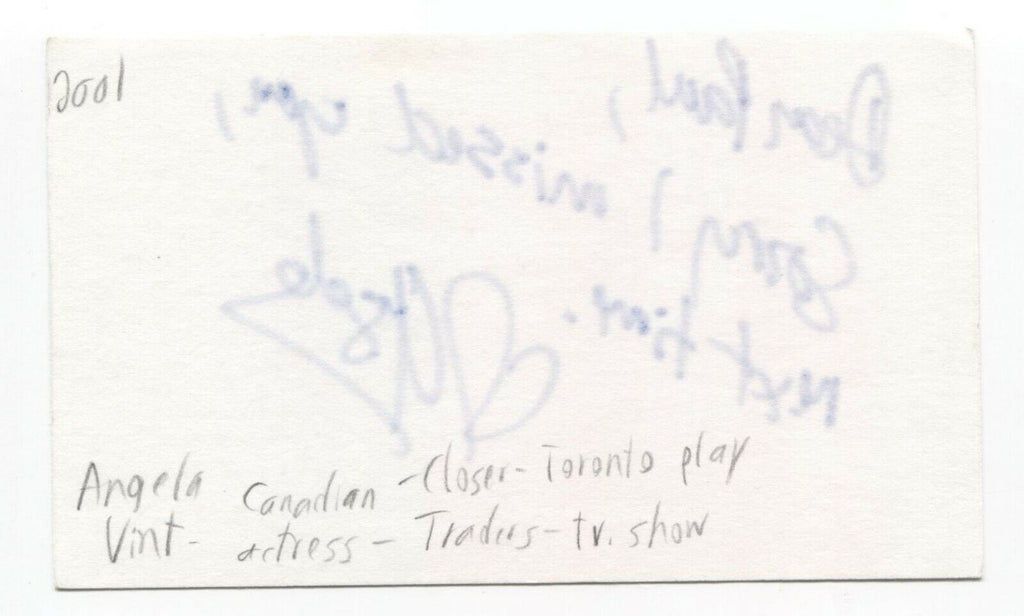 2001
Dear Paul,
Sorry I missed you,
next time.
Angela
Angela Canadian - Closer - Toronto play
Vint - actress - Traders - tv. show